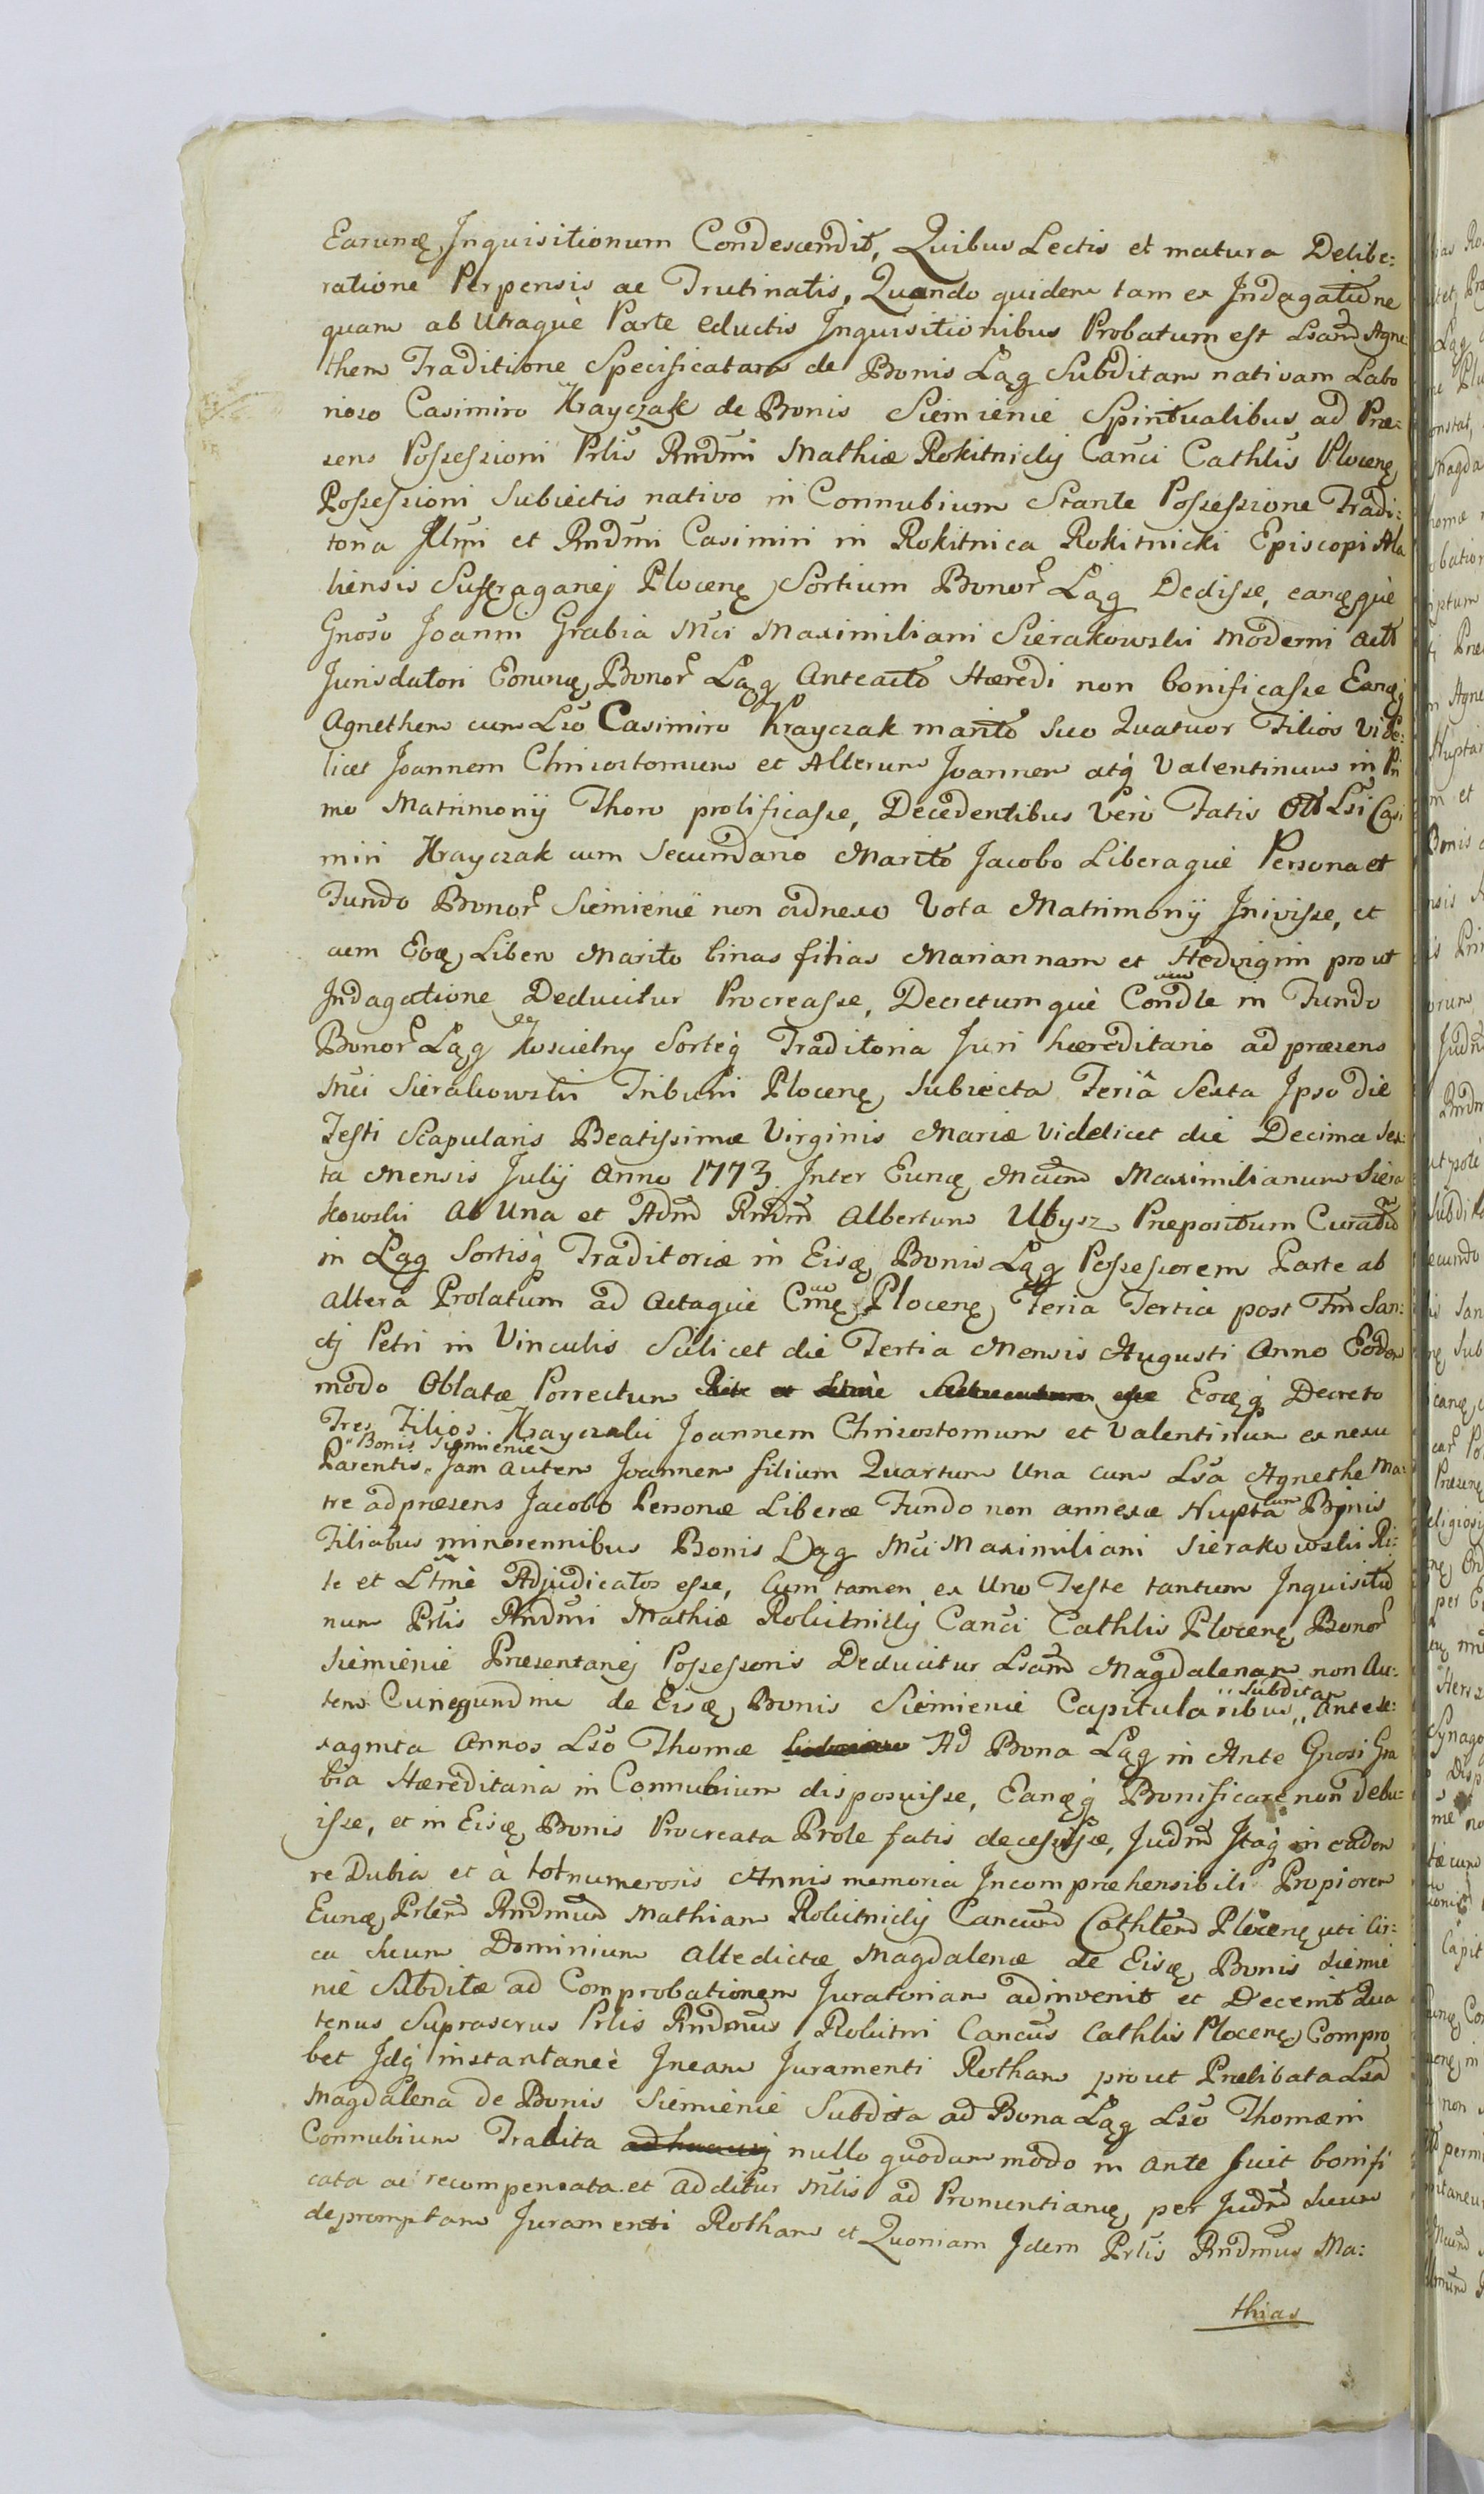 Earunę Inquisitionum Condescendit, Quibus Lectis et matura Delibe:
ratione Perpensis ac Trutinatis, Quando quidem tam ex Indagatione
quam ab Utraque Parte eductis Inquisitionibus Probatum est Lsam Agne:
them Traditione Specificatam de Bonis Łąg Subditam nativam Labo
rioso Casimiro Krayczak de Bonis Siemienie Spiritualibus ad Præ:
sens Possessioni Prlis Rndmi Mathiæ Rokitnicky Canci Cathlis Plocenę
Possessioni Subiectis nativo in Connubium Stante Possessione Tradi:
toria Jllmi et Rndmi Casimiri in Rokitnica Rokitnicki Episcopi Ala
liensis Suffraganej Plocenę Sortium Bonor Łąg Dedisse, eamęque
Gnoso Joanni Grabia Mci Maximiliani Sierakowski moderni actt
Jurisdatori Eorunę Bonor Łąg Anteacto Hæredi non bonificasse Eamę
Agnethem cum Lso Casimiro Krayczak marito suo Quatuor Filios vide:
licet Joannem Chrisostomum et Alterum Joannem atq Valentinum in Pri
mo Matrimonij Thoro prolificasse, Decedentibus Verò Fatis Ott Lsi Casi
miri Krayczak cum Secundario Marito Jacobo Liberaque Persona et
Fundo Bonor Siemienie non adnexo Vota Matrimonij Inivisse, et
cum Eoę Libero Marito binas filias Mariannam et Hedvigim prout
Indagatione Deducitur Procreasse, Decretumquè Condle in Fundo
Bonor Łąg Koscielny Sorteq Traditoria Juri hæreditario ad præsens
Mci Sierakowski Tribuni Plocenę Subiecta Feriâ Sexta Ipso die
Festi Scapularis Beatissimæ Virginis Mariæ Videlicet die Decima Sex:
ta Mensis Julij Anno 1773. Inter Eunę Mcum Maximilianum Siera
kowski Ab Una et Admd Rndm Albertum Ubysz Præpositum Curatu
in Łąg Sortisq Traditoriæ in Eisę Bonis Łąg Possessorem Parte ab
Altera Prolatum ad Actaque Cmę Plocenę Feria Tertia post Fm San:
ctj Petri in Vinculis Scilicet die Tertia Mensis Augusti Anno Eodem
modo Oblatæ Porrectum Rite et Ltme esse Eoęq Decreto
Tres Filios Krayczaki Joannem Chrisostomum et Valentinum ex nexu
Parentis "Bonis Siemienie" Jam autem Joannem filium Quartum Una cum Lsa Agnethe Ma:
tre ad præsens Jacobo Personæ Liberæ Fundo non annexæ Nupta cum Binis
Filiabus minorennibus Bonis Łąg Mci Maximiliani Sierakowski Ri:
te et Ltmè Adjudicatos esse, Cum tamen ex Uno Teste tantum Inquisitio
num Prlis Rndmi Mathiæ Rokitnicky Canci Cathlis Plocenę Bonor
Siemienie Præsentanej Possessoris Deducitur Lsam Magdalenam non Au:
tem Cunegundim de Eisę Bonis Siemienie Capitularibus "Subditam" Ante se:
xaginta Annos Lso Thomæ Ad Bona Łąg in Ante Gnosi Gra
bia Hæreditaria in Connubium disposuisse, Eamęq Bonificare non debu:
isse, et in Eisę Bonis Procreata Prole fatis decessisse, Judm Itaq in eadem
re Dubia et à tot numerosis Annis memoria Incompræhensibili Propiorem
Eunę Prlem Rndmum Mathiam Rokitnicky Cancum Cathlem Plocenę uti cir:
ca suum Dominium altedictæ Magdalenæ de Eisę Bonis Siemie
nie Subditæ ad Comprobationem Juratoriam adinvenit et Decernit Qua
tenus Suprascrus Prlis Rndmus Rokitni Cancus Cathlis Plocenę Compro
bet Idq instantaneè In eam Juramenti Rotham prout Prælibata Lsa
Magdalena de Bonis Siemienie Subdita ad Bona Łąg Lso Thomæ in
Connubium Tradita nullo quodam modo in ante fuit bonifi
cata ac recompensata et additur Mlis ad Pronuntianę per Judm suum
depromptam Juramenti Rotham et Quoniam Idem Prlis Rndmus Ma:
thias